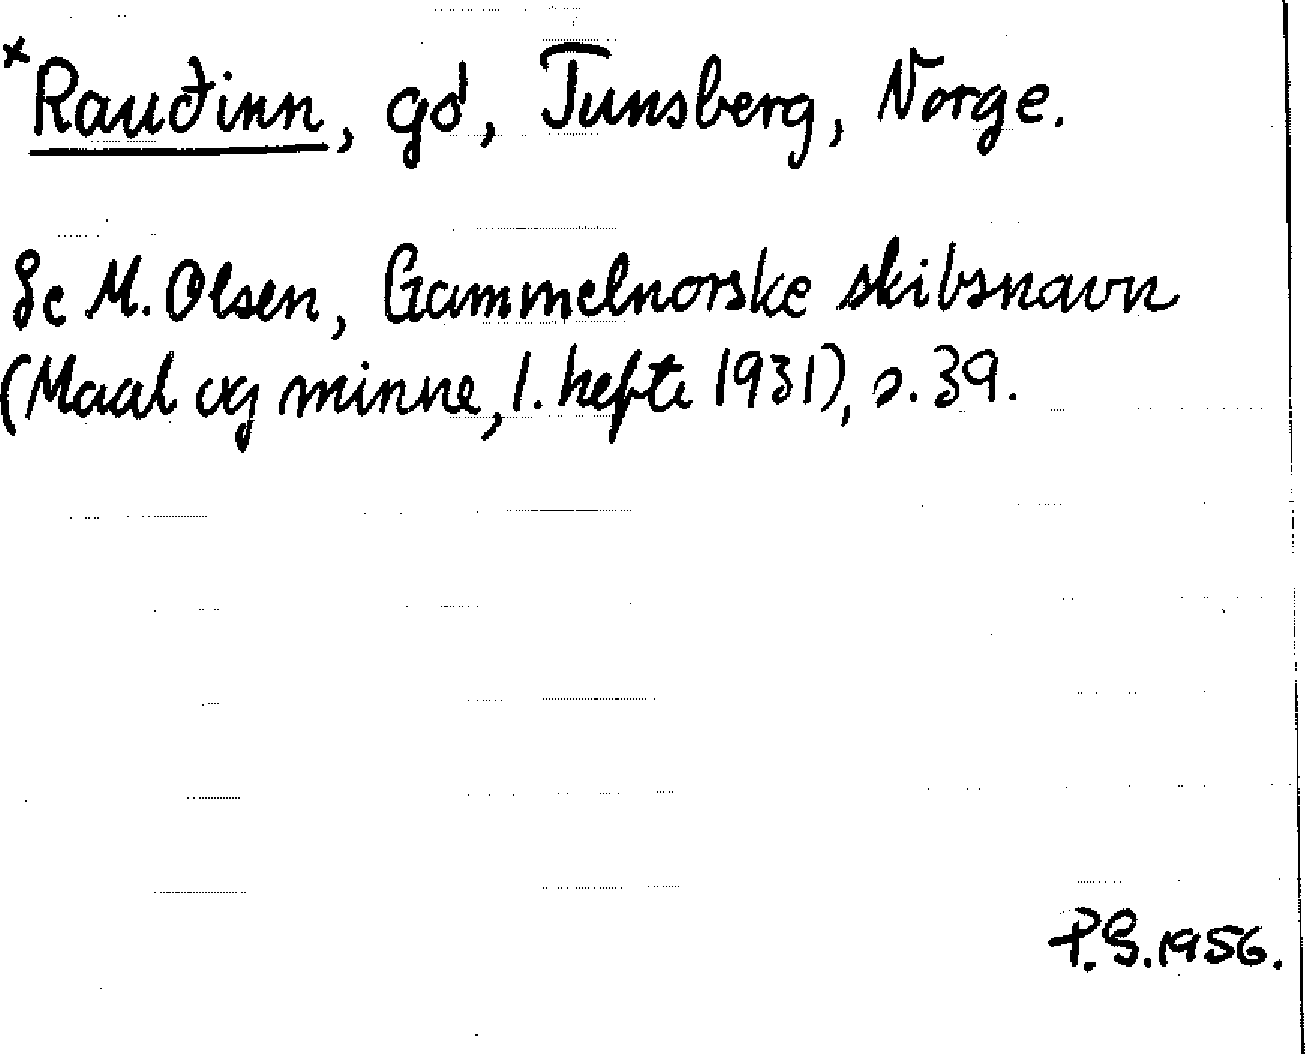 *Rauðinn, gd, Tunsberg, Norge.
Se M. Olsen, Gammelnorske skibsnavn
(Maal og minne, 1. hefte 1931), s. 39.
P.S. 1956.